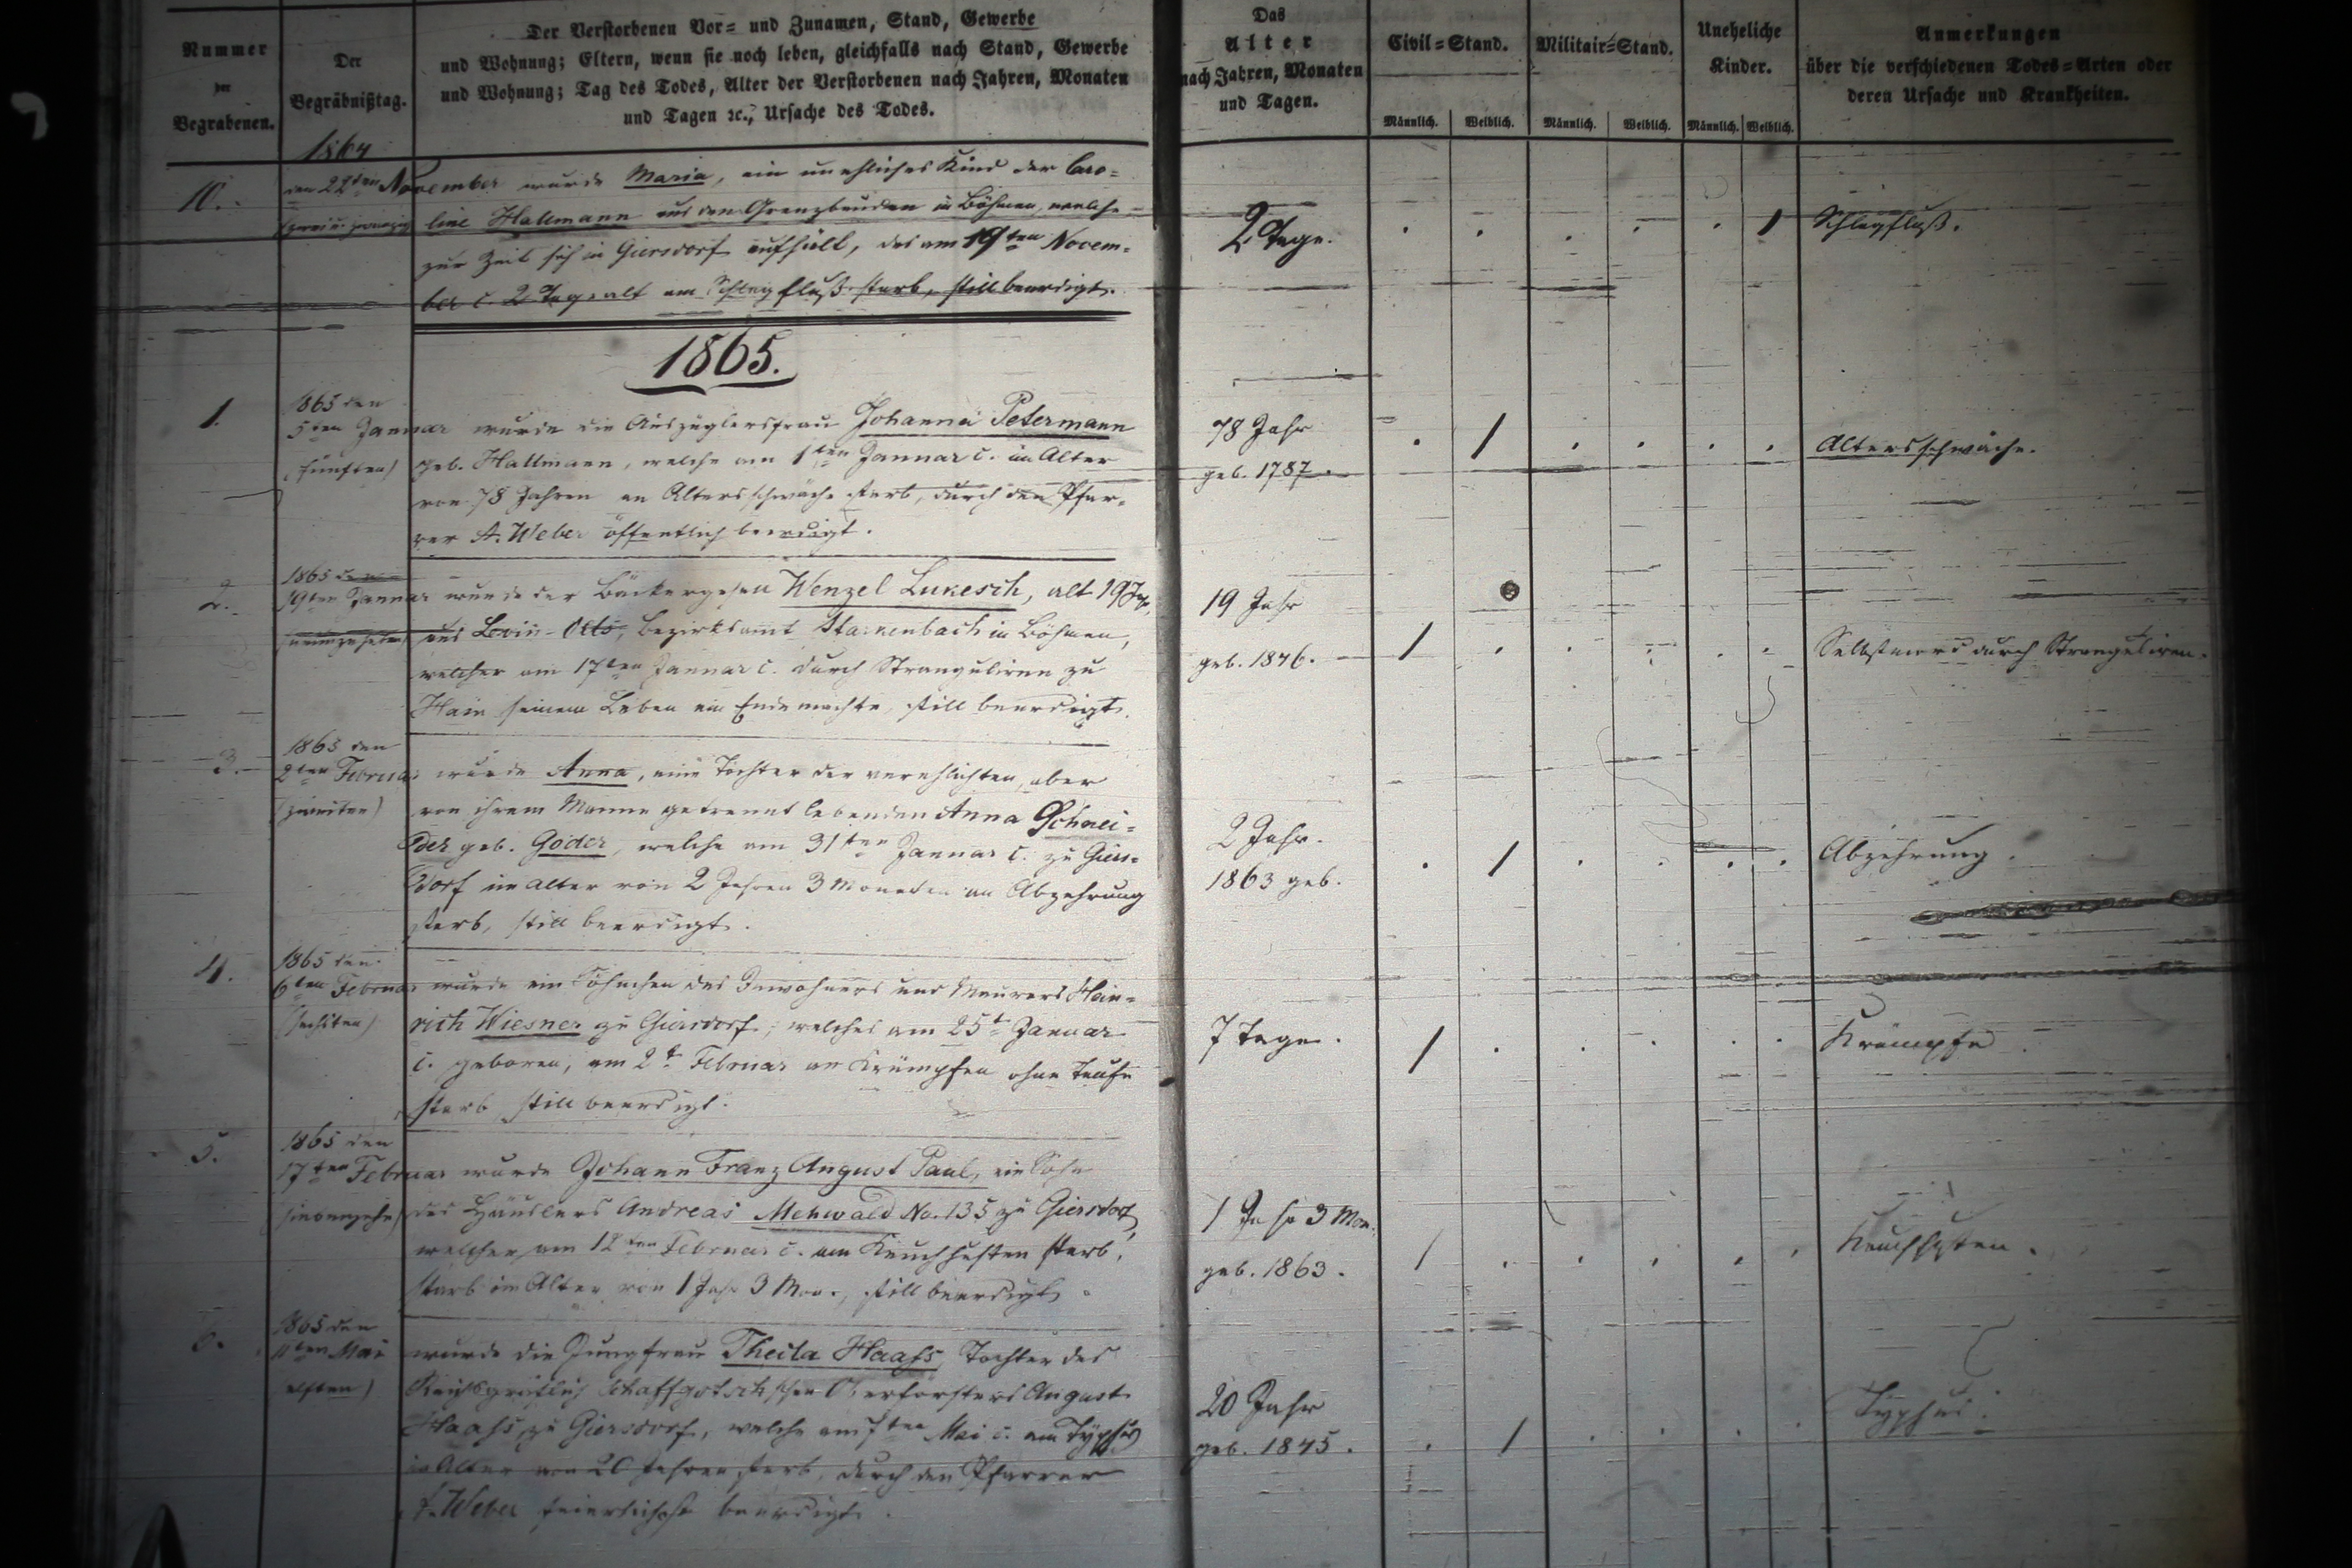 Nummer
der
Begrabenen.
Der
Begräbnißtag.
Der Verstorbenen Vor= und Zunamen, Stand, Gewerbe
und Wohnung; Eltern, wenn sie noch leben, gleichfalls nach Stand, Gewerbe
und Wohnung; Tag des Todes, Alter der Verstorbenen nach Jahren, Monaten
und Tagen ꝛc., Ursache des Todes.
Das
Alter
nach Jahren, Monaten
und Tagen.
Civil=Stand.
Militair=Stand.
Uneheliche
Kinder.
Männlich. Weiblich. Männlich. Weiblich. Männlich. Weiblich.
Anmerkungen
über die verschiedenen Todes=Arten oder
deren Ursache und Krankheiten.
1864
10. den 22ten November wurde Maria, ein unehliches Kind der Caro=
(zwei u. zwanzig) line Hallmann aus den Grenzbauden in Böhmen, welche
zur Zeit sich in Giersdorf aufhält, das am 19ten Novem=
ber c. 2 Tage alt am Schlagfluß starb, still beerdigt.
2 Tage.
Schlagfluß.
1865.
1. 1865 den
5ten Januar wurde die Auszüglersfrau Johanna Petermann
(fünften) geb. Hallmann, welche am 1ten Januar c. im Alter
von 78 Jahren an Altersschwäche starb, durch den Pfar=
rer A. Weber öffentlich beerdigt.
78 Jahr
geb. 1787.
Altersschwäche.
2. 1865 den
19ten Januar wurde der Bäckergesell Wenzel Lukesch, alt 19 J.,
(neunzehnten) aus Levin-Olts, Bezirksamt Starkenbach in Böhmen,
welcher am 17ten Januar c. durch Stranguliren zu
Hain seinem Leben ein Ende machte, still beerdigt.
19 Jahr
geb. 1846.
Selbstmord durch Stranguliren.
3. 1865 den
2ten Februar wurde Anna, eine Tochter der verehlichten, aber
(zweiten) von ihrem Manne getrennt lebenden Anna Schnei=
der geb. Goder, welche am 31ten Januar c. zu Giers=
dorf im Alter von 2 Jahren 3 Monaten an Abzehrung
starb, still beerdigt.
2 Jahr.
1863 geb.
Abzehrung.
4. 1865 den
6ten Februar wurde ein Söhnchen des Inwohners und Maurers Hein=
(sechsten) rich Wiesner zu Giersdorf, welches am 25t Januar
c. geboren, am 2t Februar an Krämpfen ohne Taufe
starb still beerdigt.
7 Tage.
Krämpfe
5. 1865 den
17ten Februar wurde Johann Franz August Paul, ein Sohn
(siebenzehn) des Häuslers Andreas Mehwald No. 135 zu Giersdorf,
welcher am 12ten Februar c. am Keuchhusten starb,
starb im Alter von 1 Jahr 3 Mon., still beerdigt.
1 Jahr 3 Mon.
geb. 1863.
Keuchhusten.
6. 1865 den
11ten Mai wurde die Jungfrau Thecla Haass, Tochter des
elften) Reichsgräflich Schaffgotsch'schen Oberförsters August
Haass zu Giersdorf, welche am 7ten Mai c. am Typhus
im Alter von 20 Jahren starb, durch den Pfarrer
A. Weber feierlichst beerdigt.
20 Jahr
geb. 1845.
Typhus.